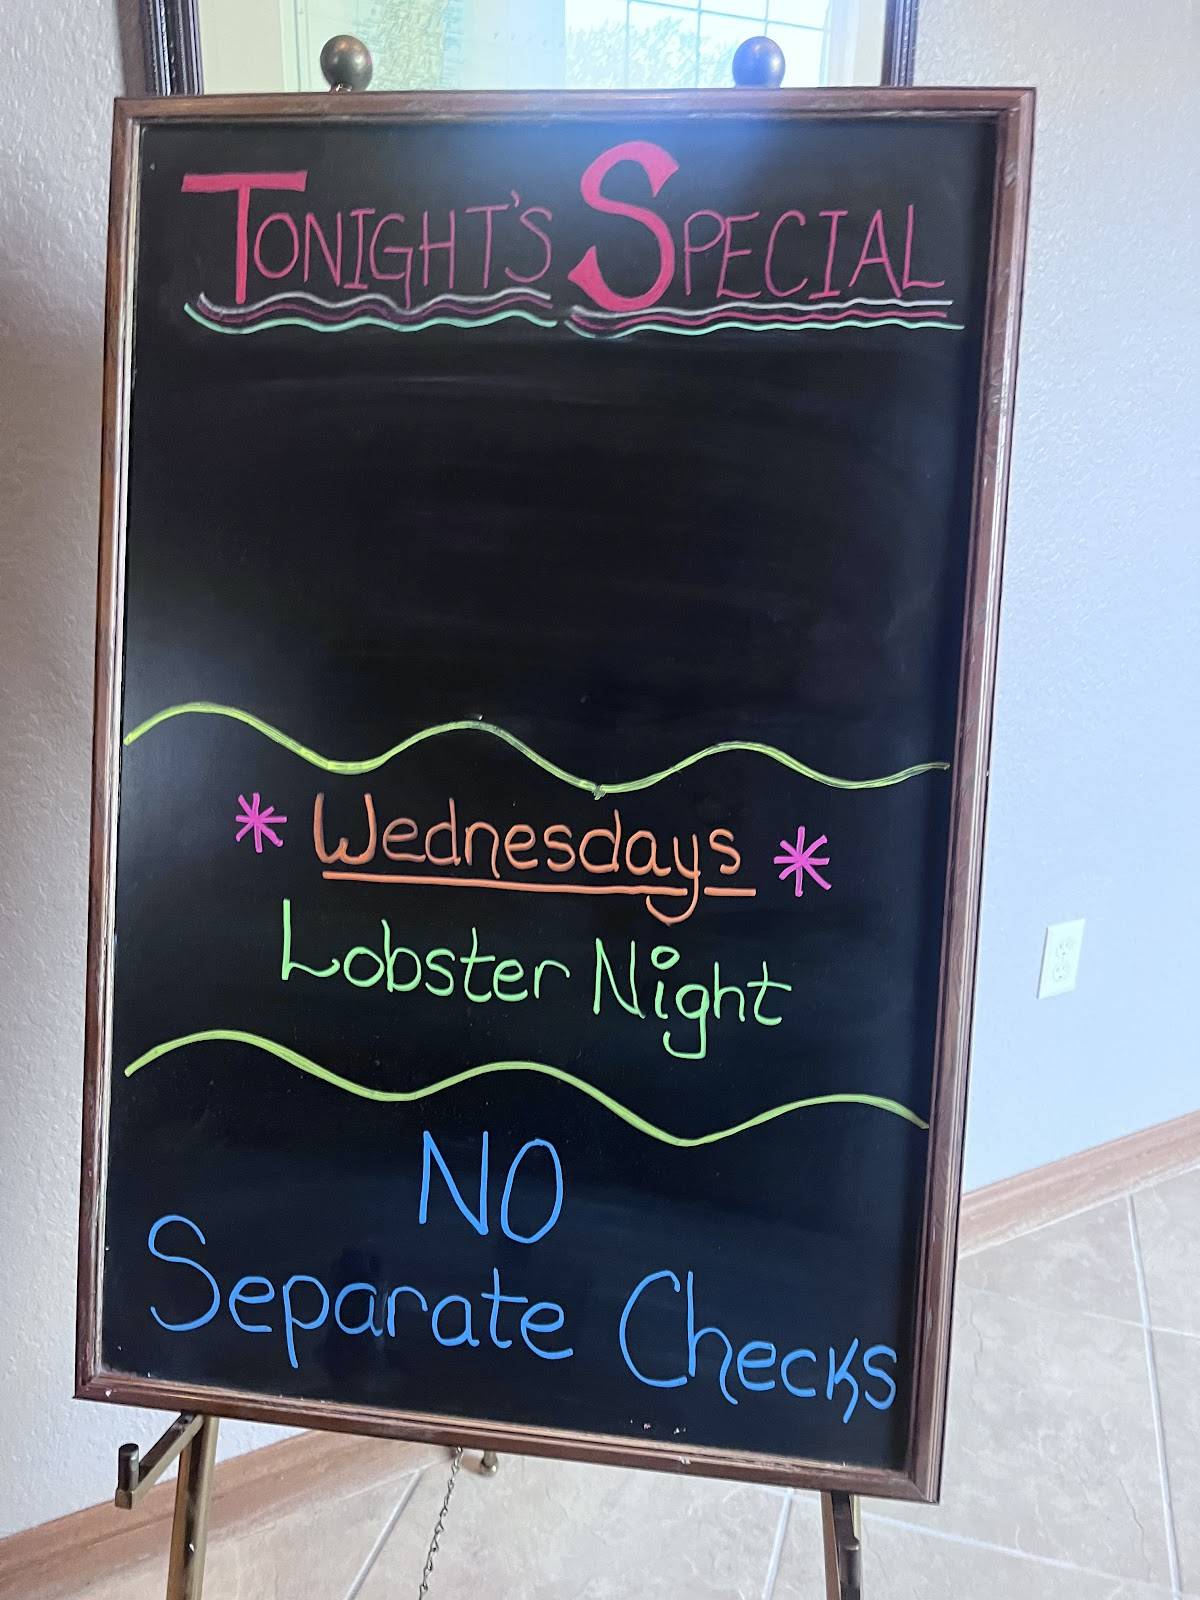 TONIGHT'S SPECIAL
* Wednesdays *
Lobster Night
NO
Separate Checks